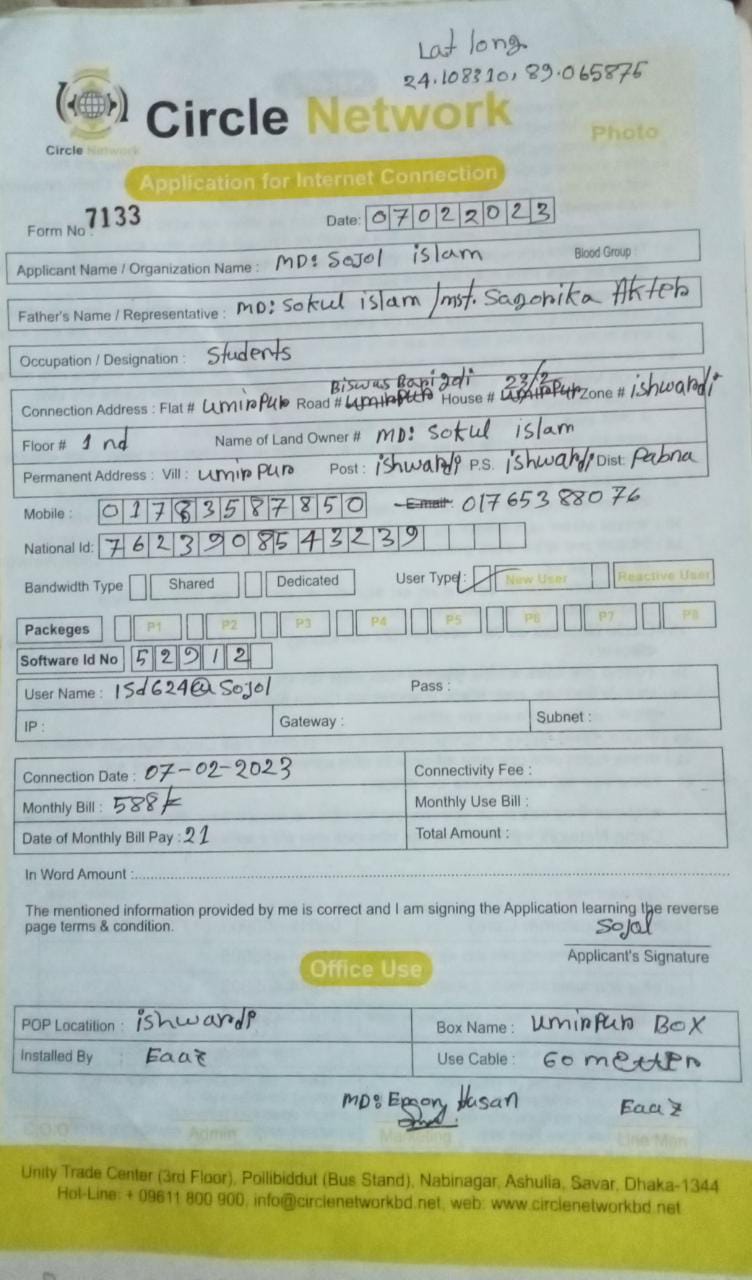 Lat long
24.108310, 89.065875
Circle Network
Photo
Circle Network
Application for Internet Connection
Form No : 7133 Date: 07022023
Applicant Name / Organization Name : MD: Sojol islam Blood Group
Father's Name / Representative : MD: Sokul islam /mst. Sagorika Akter
Occupation / Designation : Students
Biswas Bari goli 23/2
Connection Address : Flat # umirpur Road # umirpur House # umirpur Zone # ishwardi
Floor # 1 nd Name of Land Owner # MD: Sokul islam
Permanent Address : Vill : umirpur Post : ishwardi P.S. ishwardi Dist: Pabna
Mobile : 01783587850 Email: 01765388076
National Id: 7623908543239
Bandwidth Type Shared Dedicated User Type : New User Reactive User
Packeges P1 P2 P3 P4 P5 P6 P7 P8
Software Id No 52912
User Name : ISd624@Sojol Pass :
IP : Gateway : Subnet :
Connection Date : 07-02-2023 Connectivity Fee :
Monthly Bill : 588 Monthly Use Bill :
Date of Monthly Bill Pay : 21 Total Amount :
In Word Amount :
The mentioned information provided by me is correct and I am signing the Application learning the reverse
page terms & condition.
Sojal
Applicant's Signature
Office Use
POP Locatition : ishwardi Box Name : umirpur BOX
Installed By : Eaaz Use Cable : 60 metter
MD: Hasan Eaaz
C.O.O Admin Marketing Line Man
Unity Trade Center (3rd Floor), Pollibiddut (Bus Stand), Nabinagar, Ashulia, Savar, Dhaka-1344
Hot-Line: + 09611 800 900, info@circlenetworkbd.net, web: www.circlenetworkbd.net